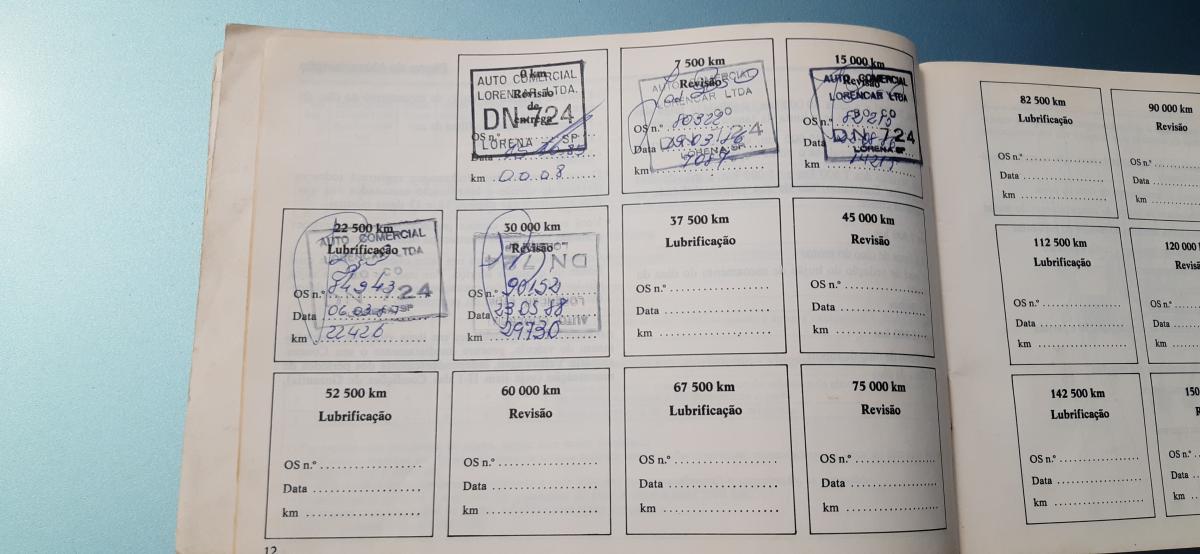 0 km
Revisão
de
entrega
AUTO COMERCIAL
LORENCAR LTDA.
DN 724
LORENA SP
OS n.º
Data
km 0.0.0.8
7 500 km
Revisão
AUTO COMERCIAL
LORENCAR LTDA
LORENA SP
OS n.º 80322
Data 29.03.86
km 7087
15 000 km
Revisão
AUTO COMERCIAL
LORENCAR LTDA
DN 724
LORENA SP
OS n.º 82215
Data
km 14215
22 500 km
Lubrificação
AUTO COMERCIAL
LORENCAR LTDA
24
SP
OS n.º 84943
Data 06.03.87
km 22426
30 000 km
Revisão
DN 724
AUTO
OS n.º 90152
Data 23.05.88
km 29730
37 500 km
Lubrificação
OS n.º
Data
km
45 000 km
Revisão
OS n.º
Data
km
52 500 km
Lubrificação
OS n.º
Data
km
60 000 km
Revisão
OS n.º
Data
km
67 500 km
Lubrificação
OS n.º
Data
km
75 000 km
Revisão
OS n.º
Data
km
12
82 500 km
Lubrificação
OS n.º
Data
km
90 000 km
Revisão
OS n.º
Data
km
112 500 km
Lubrificação
OS n.º
Data
km
120 000
OS n.º
Data
km
142 500 km
Lubrificação
OS n.º
Data
km
150
OS n.º
Data
km